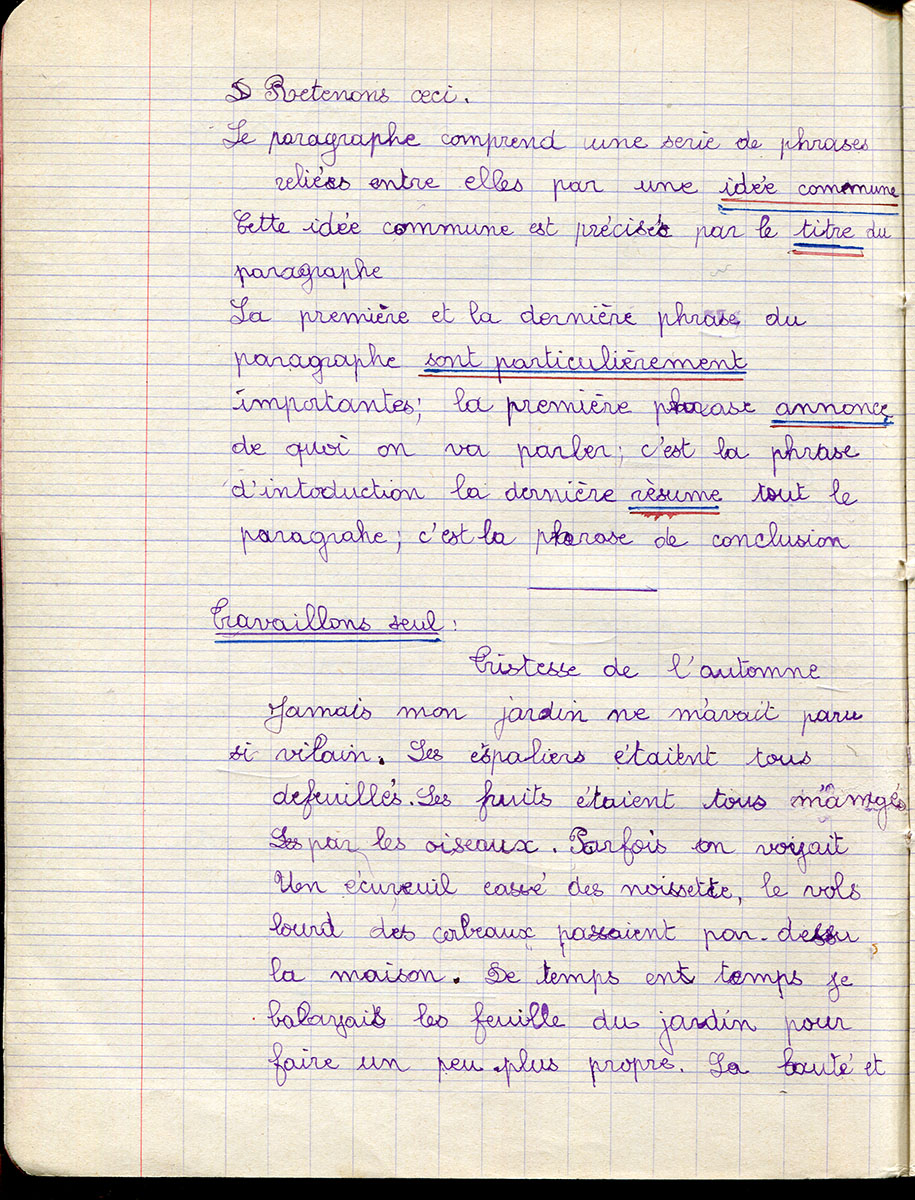 Retenons ceci.
Le paragraphe comprend une serie de phrases
reliées entre elles par une idée commune
Cette idée commune est précisée par le titre du
paragraphe
La première et la dernière phrase du
paragraphe sont particulièrement
importantes; la première phrase annonce
de quoi on va parler; c'est la phrase
d'intoduction la dernière rèsume tout le
paragrahe; c'est la phrase de conclusion
Travaillons seul:
Tristesse de l'automne
Jamais mon jardin ne m'avait paru
si vilain. Les espaliers étaient tous
defeuillés. Les fruits étaient tous mangés
par les oiseaux. Parfois on voyait
Un écureuil cassé des noissette, le vols
lourd des corbeaux passaient par-dessu
la maison. De temps ent temps je
balayais les feuille du jardin pour
faire un peu plus propre. La bauté et